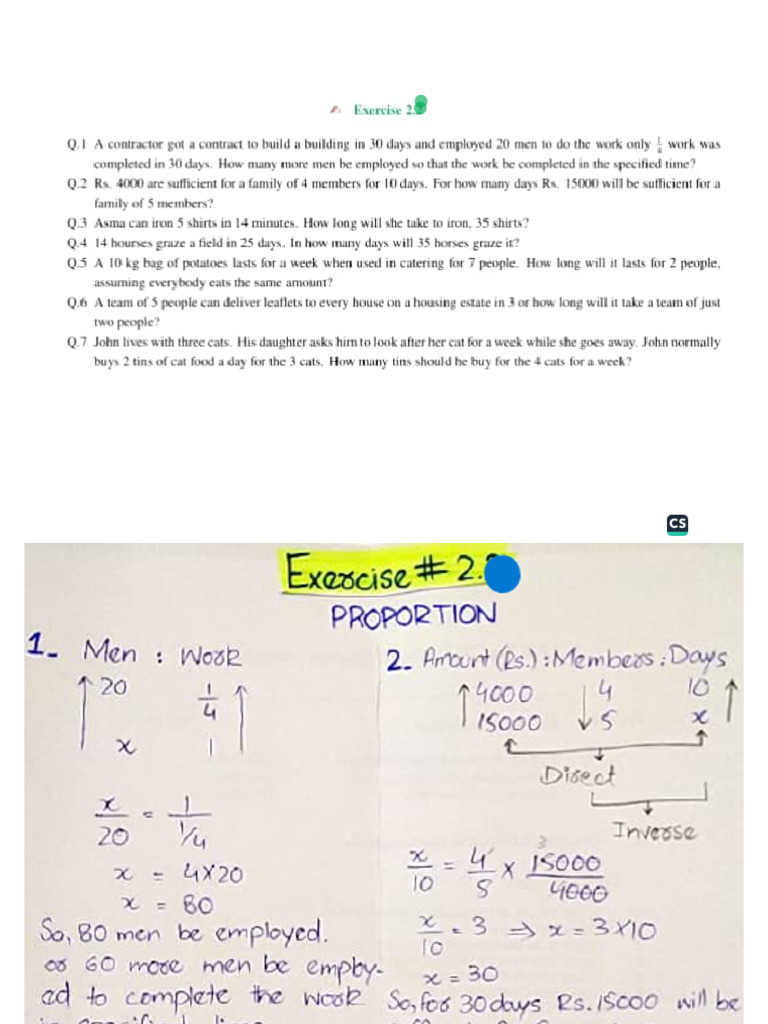 Exercise 2.
Q.1 A contractor got a contract to build a building in 30 days and employed 20 men to do the work only 1/4 work was
completed in 30 days. How many more men be employed so that the work be completed in the specified time?
Q.2 Rs. 4000 are sufficient for a family of 4 members for 10 days. For how many days Rs. 15000 will be sufficient for a
family of 5 members?
Q.3 Asma can iron 5 shirts in 14 minutes. How long will she take to iron, 35 shirts?
Q.4 14 hourses graze a field in 25 days. In how many days will 35 horses graze it?
Q.5 A 10 kg bag of potatoes lasts for a week when used in catering for 7 people. How long will it lasts for 2 people,
assuming everybody eats the same amount?
Q.6 A team of 5 people can deliver leaflets to every house on a housing estate in 3 or how long will it take a team of just
two people?
Q.7 John lives with three cats. His daughter asks him to look after her cat for a week while she goes away. John normally
buys 2 tins of cat food a day for the 3 cats. How many tins should he buy for the 4 cats for a week?
CS
Exercise # 2.
PROPORTION
1- Men : Work
20 1/4
x 1
x/20 = 1/(1/4)
x = 4×20
x = 80
So, 80 men be employed.
or 60 more men be employ-
ed to complete the work
2- Amount (Rs.) : Members : Days
4000 4 10
15000 5 x
Direct
Inverse
x/10 = 4/5 × 15000/4000
3
x/10 = 3 ⇒ x = 3×10
x = 30
So, for 30 days Rs. 15000 will be